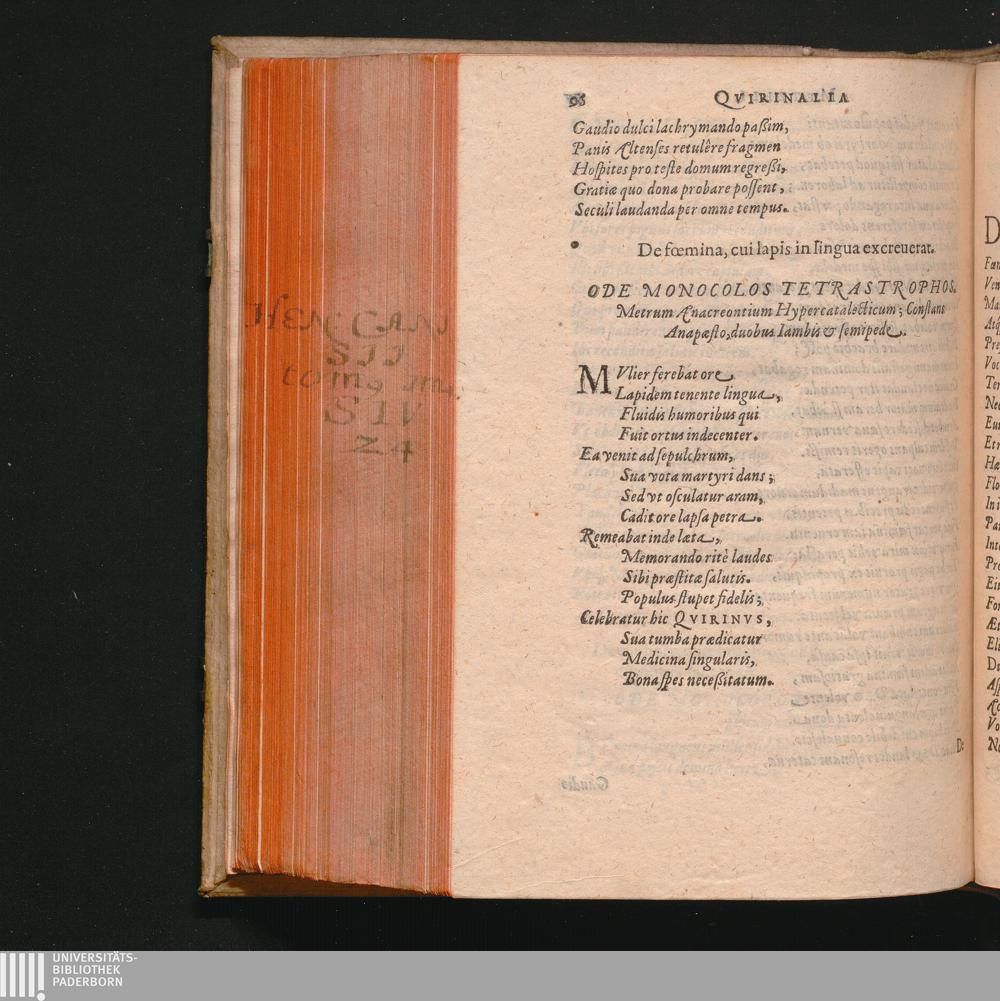 HEN CANI
SII
tomg
SIV
24
96 QVIRINALIA
Gaudio dulci lachrymando paßim,
Panis Æltenses retulêre fragmen
Hospites pro teste domum regreßi,
Gratiæ quo dona probare possent,
Seculi laudanda per omne tempus.
De fœmina, cui lapis in lingua excreuerat.
ODE MONOCOLOS TETRASTROPHOS.
Metrum Anacreontium Hypercatalecticum; Constans
Anapæsto, duobus Iambis & semipede.
MVlier ferebat ore
Lapidem tenente lingua,
Fluidis humoribus qui
Fuit ortus indecenter.
Ea venit ad sepulchrum,
Sua vota martyri dans;
Sed vt osculatur aram,
Cadit ore lapsa petra.
Remeabat inde læta,
Memorando ritè laudes
Sibi præstitæ salutis.
Populus stupet fidelis;
Celebratur hic QVIRINVS,
Sua tumba prædicatur
Medicina singularis,
Bona spes neceßitatum.
De
UNIVERSITÄTS-
BIBLIOTHEK
PADERBORN